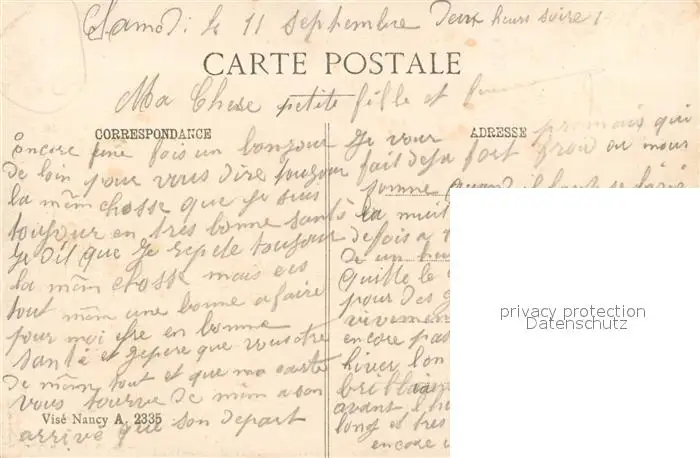 Samedi le 11 septembre Deux heurs soire
CARTE POSTALE
Ma Chere petite fille et
CORRESPONDANCE
encore une fois un bonjour
de loin pour vous dire toujour
la mêm chosse que je suis
toujour en tres bonne santé
je dit que je repete toujour
la mêm chosse mais ces
tout mêm une bonne afaire
pour moi être en bonne
santé et jepere que vous être
de mêm tout et que ma carte
vous tourve de mêm a son
arrivé que son depart
Visé Nancy A. 2335
ADRESSE
Je vous promais qui
fait deja fort froid ou nous
somme quand il faut
la nuit
defois a
de un heu
quitte le
pour des
vivement
encore pas
hiver lon
avant l'hi
long et tres
encore
privacy protection
Datenschutz